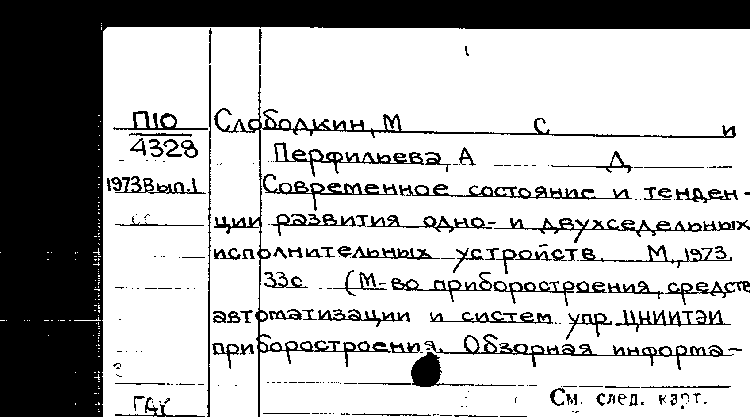 П10 Слободкин, М С и
4328 Перфильева, А Д
1973 Вып.1 Современное состояние и тенден-
ции развития одно- и двухседельных
исполнительных устройств. М., 1973.
33с (М-во приборостроения, средств
автоматизации и систем упр. ЦНИИТЭИ
приборостроения. Обзорная информа-
См. след. карт.